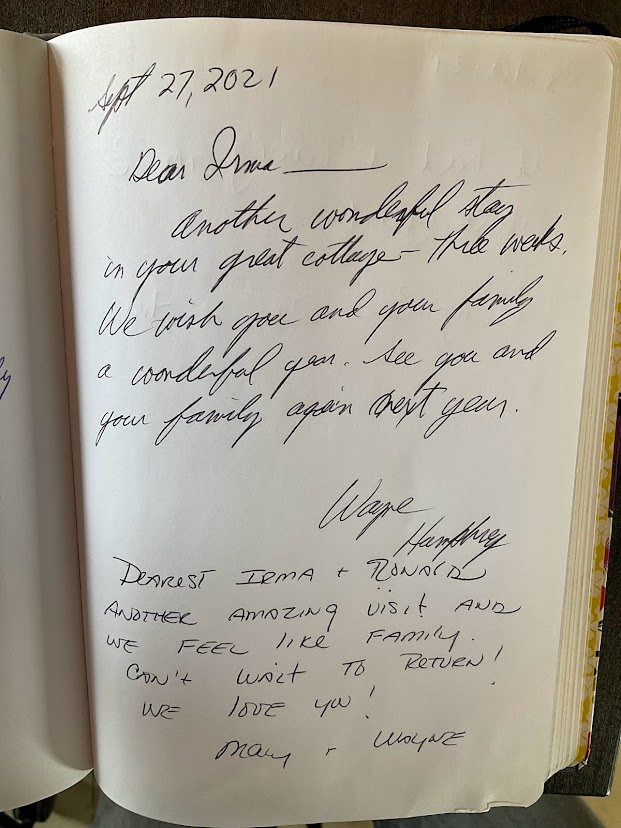 Sept 27, 2021
Dear Irma
Another wonderful stay
in your great cottage - three weeks.
We wish you and your family
a wonderful year. See you and
your family again next year.
Wayne
Humphrey
DEAREST IRMA + RONALD
ANOTHER AMAZING VISIT AND
WE FEEL LIKE FAMILY.
CAN'T WAIT TO RETURN!
WE LOVE YOU!
MARY + WAYNE